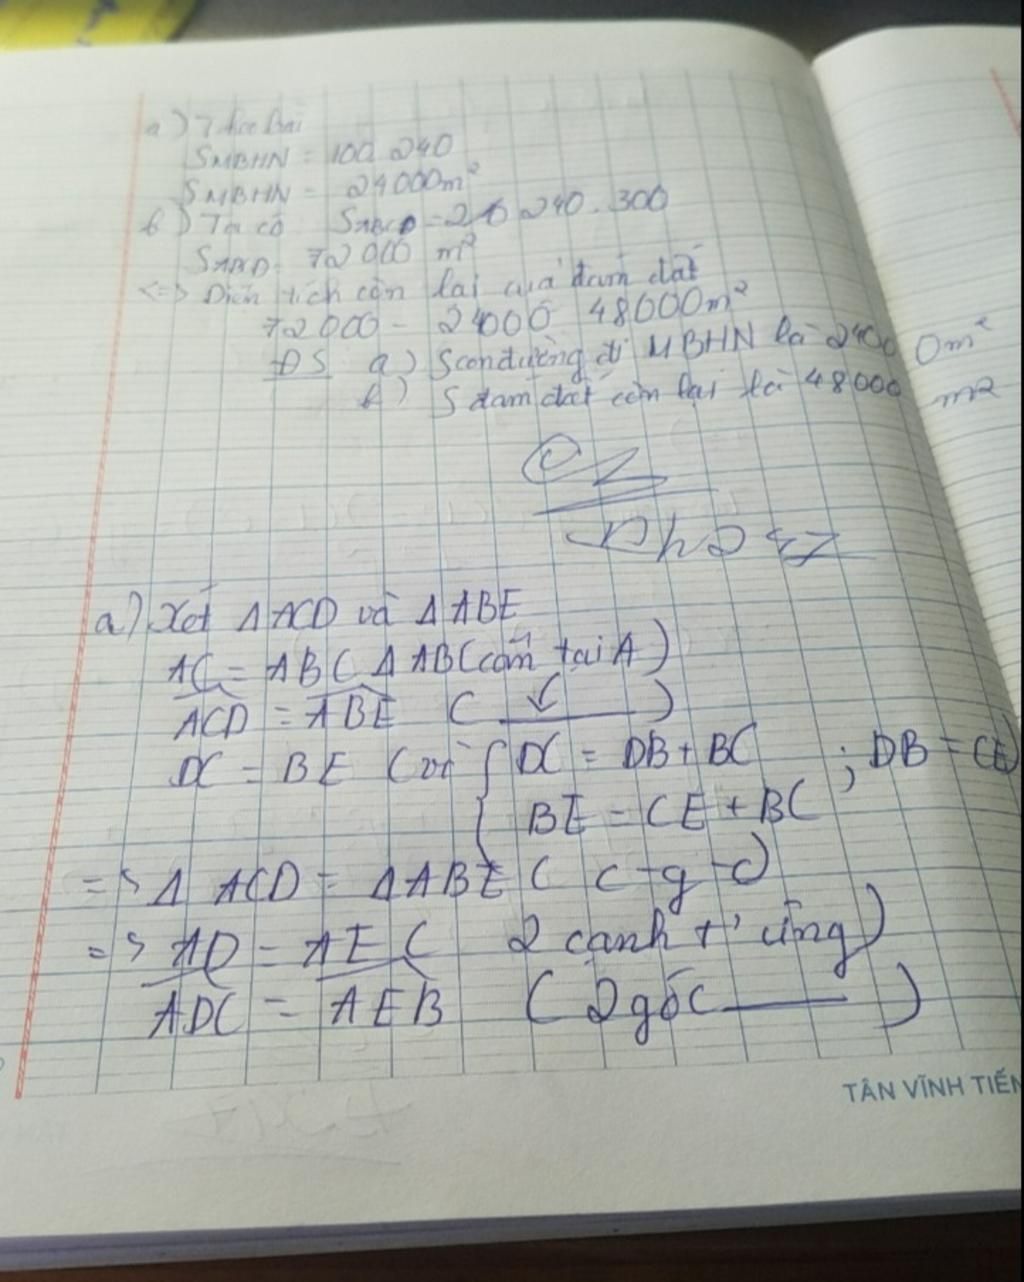 a) Theo bài
SMBHN = 100.240
SMBHN = 24000m²
b) Ta có SABCD = 240.300
SABD = 72000 m²
<=> Diện tích còn lại của đám đất
72000 - 24000 48000m²
ĐS a) S con đường đi MBHN là 24000m²
b) S đám đất còn lại là 48000 m²
a) Xét Δ ACD và Δ ABE
AC = AB ( Δ ABC cân tại A )
ACD = ABE ( )
DC = BE ( vì { DC = DB + BC ; DB = CE )
BE = CE + BC
=> Δ ACD = Δ ABE ( c-g-c )
=> AD = AE ( 2 cạnh t' ứng )
ADC = AEB ( 2 gốc )
TÂN VĨNH TIẾN